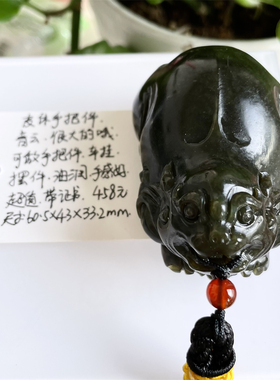 手把件
很大的哦
可做手把件.车挂
摆件.油润.手感好
超值.带证书.458元
尺寸60.5X43X33.2mm